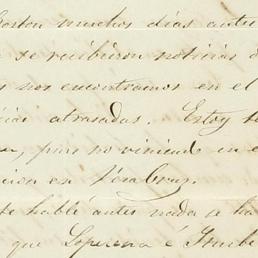 Boston muchos días antes
se recibieron noticias d
nos encontramos en el
atrasadas. Estoy
, pues no viniendo en e
en Veracruz.
te hablé antes nada se ha
que Loperena é Iturbe